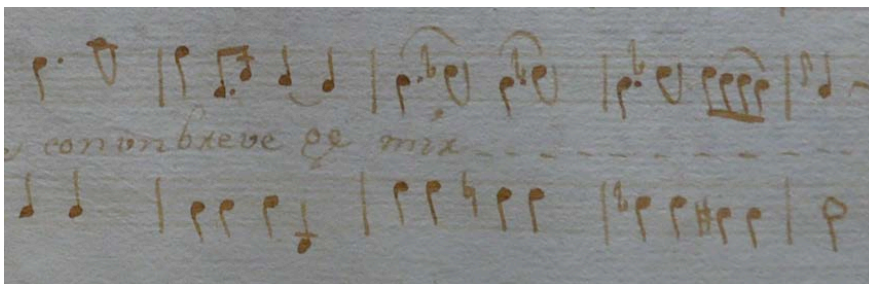 con un breve qe mix